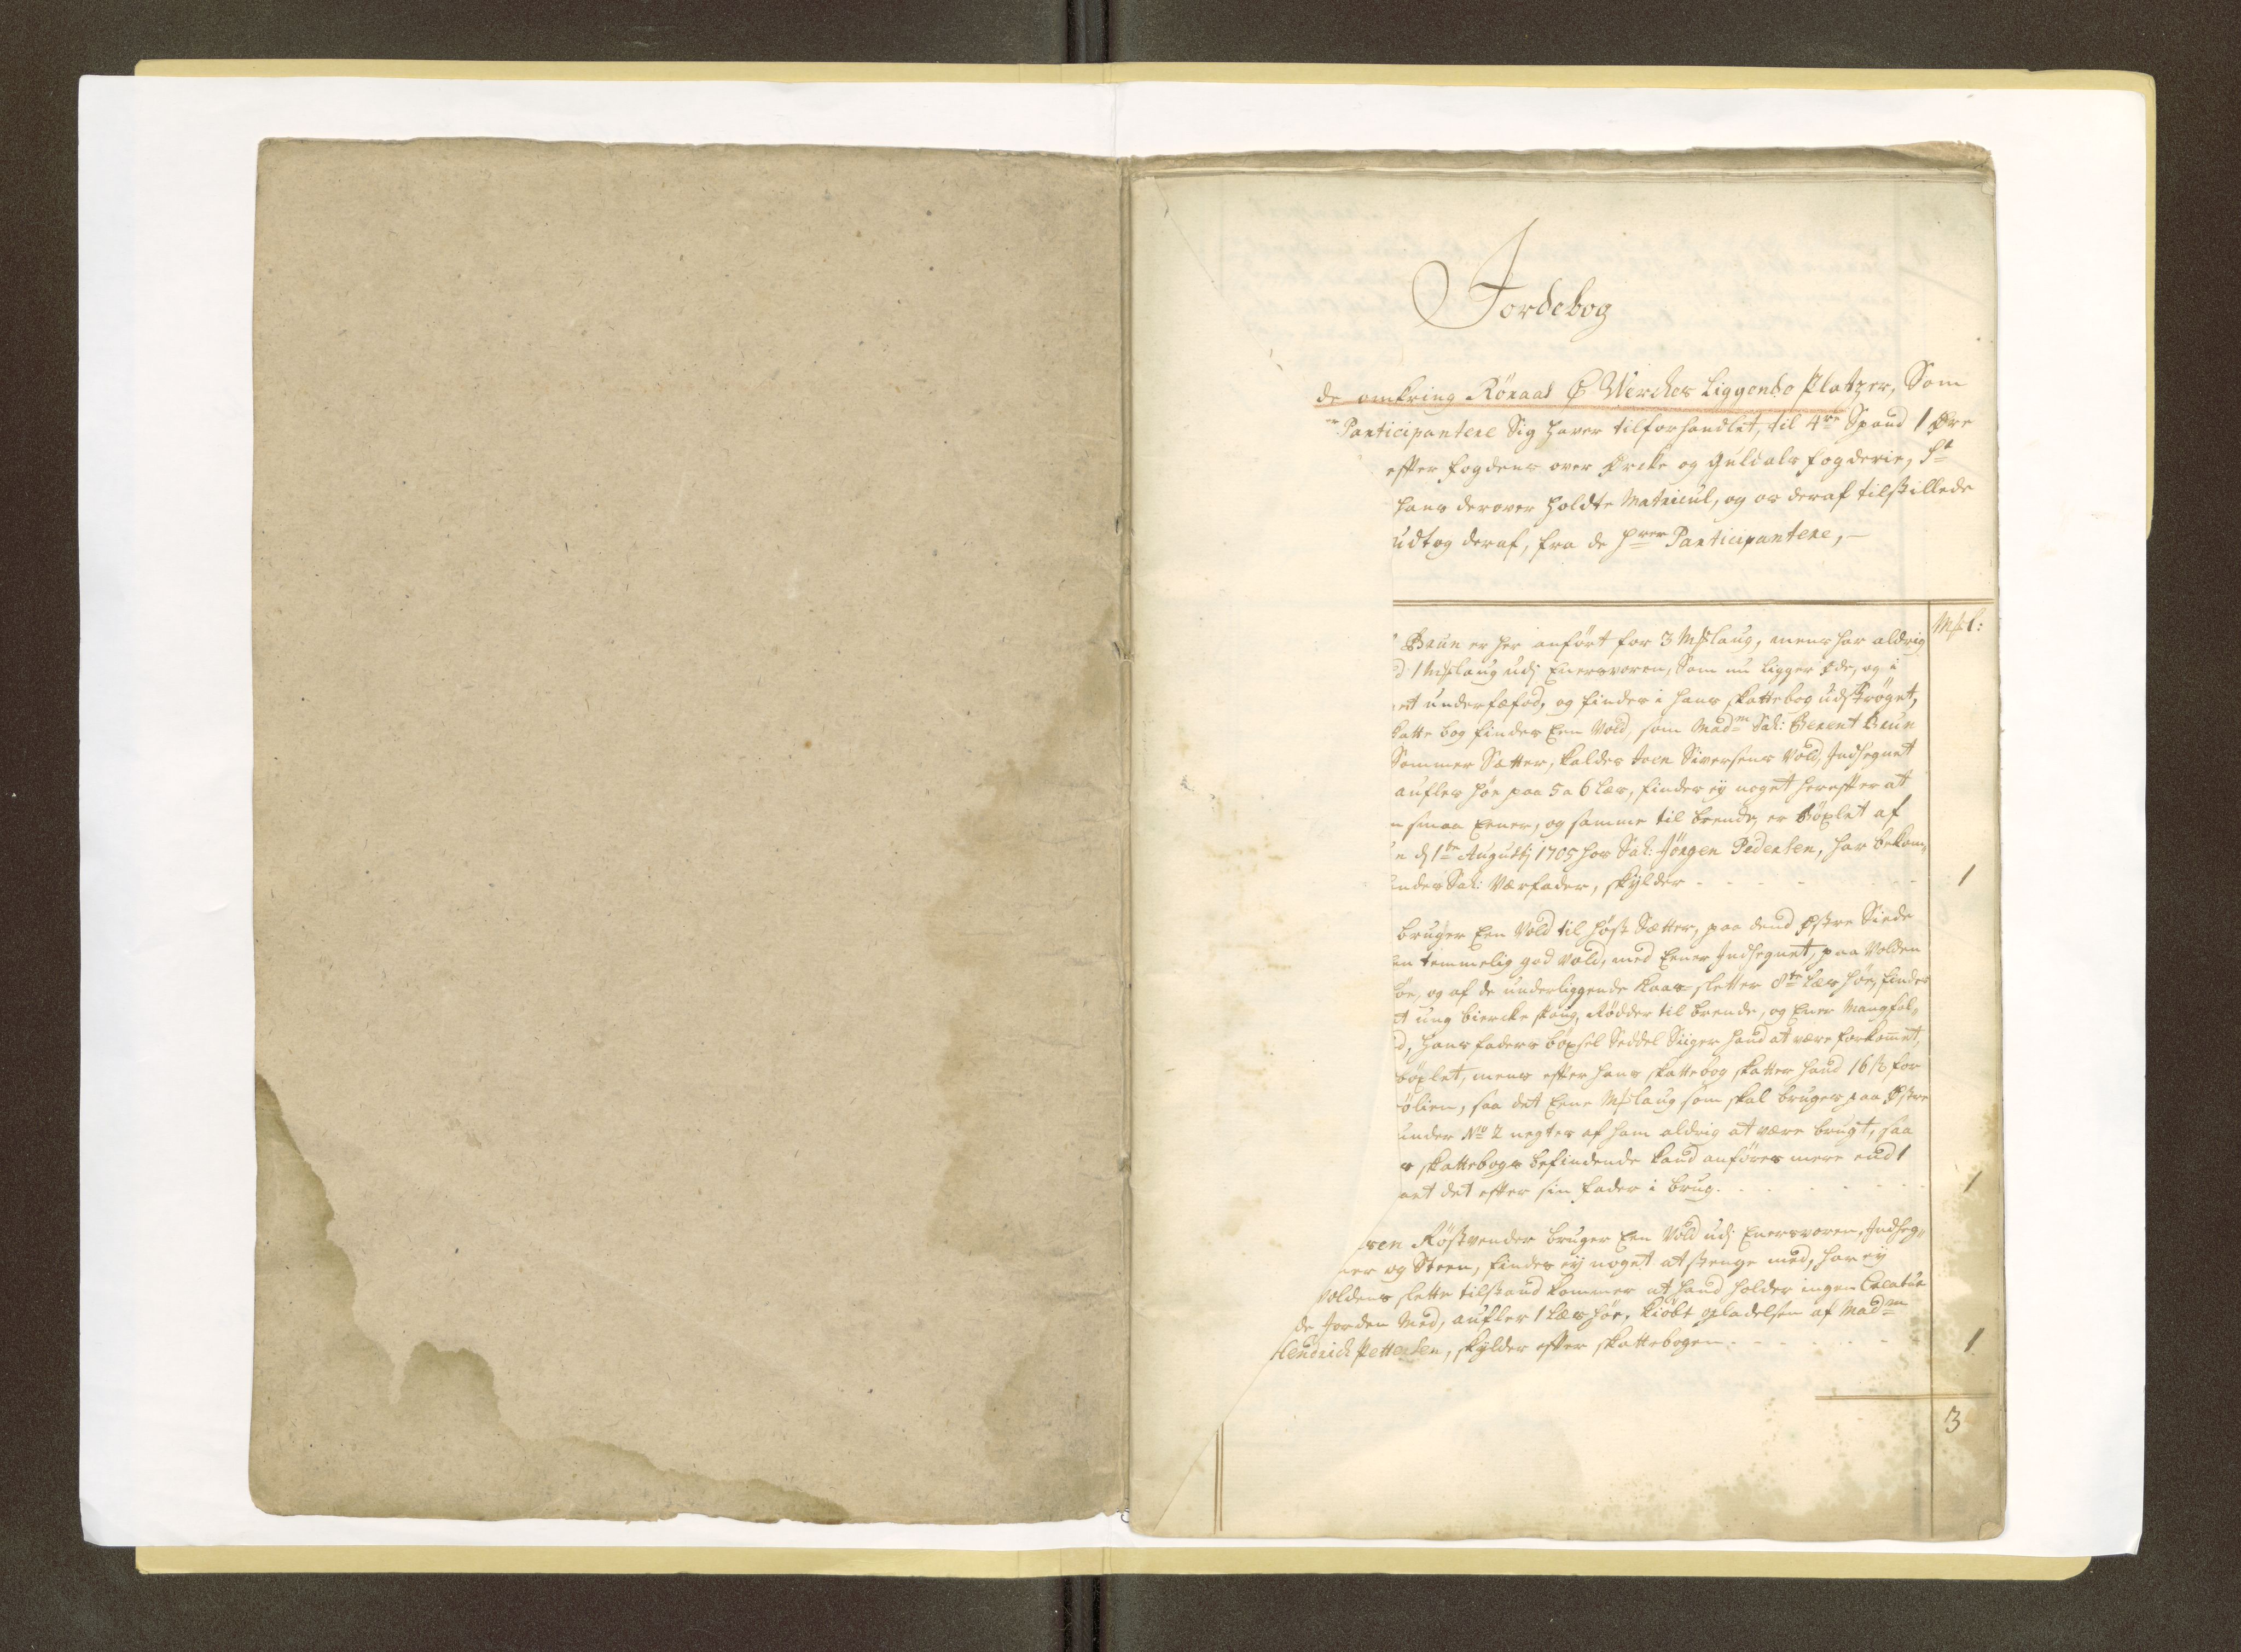 Jordebog
de omkring Röraas Ø Werckes Liggende Platzer, Som
Participantene Sig haver tilforhandlet, til 4re Spand 1 Øre
efter fogdens over Örcke og Guldals fogderie, Sr
hans derover holdte Matricul, og os deraf tilstillede
udtog deraf, fra de Hrer Participantene,
Mſl:
Brun er her anfört for 3 Mſlaug, mens har aldrig
1 Mſlaug udj Enersvoren, Som nu ligger Øde, og i
et underfæfod, og findes i hans skattebog udströget,
katte bog findes Een Vold, som Madm Sal: Berent Brun
Sommer Sætter, kaldes Joen Siversens Vold, Indhegnet
aufles höe paa 5 a 6 Læs, findes ej noget herefter at
smaa Eener, og samme til brende, er böxlet af
d 1te Augustj 1705 hos Sal: Jörgen Pedersen, har bekom,,
indes Sal: Værfader, skylder - - - - - 1
bruger Een Vold til höst Sætter, paa dend Østre Siede
en temmelig god Vold, med Eener Indhegnet, paa Volden
höe, og af de underliggende Raaer sletter 8te Læs höe, findes
et ung biercke skoug, Rödder til brende, og Ener Mangfol,,
d, hans faders böxsel Seddel Siiger hand at være forkommet,
böxlet, mens efter hans skattebog skatter hand 16 ß for
ölien, saa det Eene Mſlaug som skal bruges paa Østre
under No 2 negtes af ham aldrig at være brugt, saa
s skattebogs befindende kand anföres mere end 1
et det efter sin fader i brug. - - - - - 1
sen Röstvender bruger Een Vold udj Enersvoren, Indheg,,
er og Steen, findes ej noget at stenge med, har ej
Voldens slette tilstand kommer at hand holder ingen Creatur
de Jorden Med, aufler 1 Læs höe, kiöbt opladelsen af Madm
Hendrich Pettersen, skylder efter skattebogen - - - - - 1
3